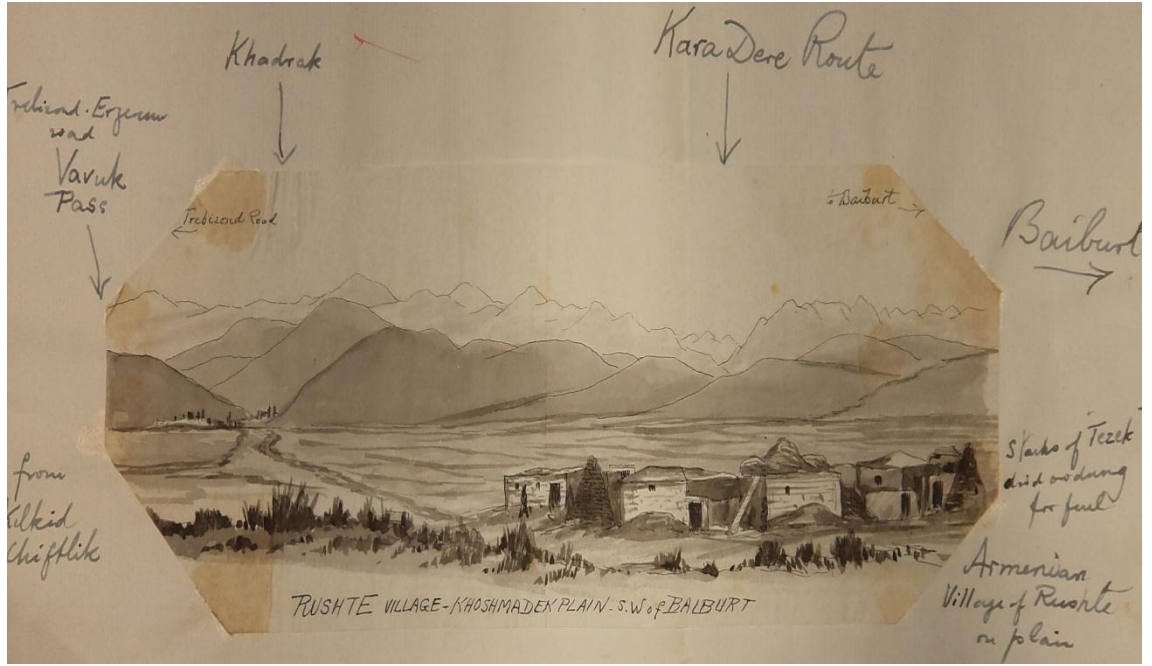 Khadrak
Kara Dere Route
Trebizond-Erzerum
road
Vavuk
Pass
Trebizond Road
to Baiburt
Baiburt
from
Kelkid
Chiftlik
Stacks of "Tezek"
dried cowdung
for fuel
Armenian
Village of Rushte
on plain
RUSHTE VILLAGE - KHOSHMADEK PLAIN - S.W of BAIBURT